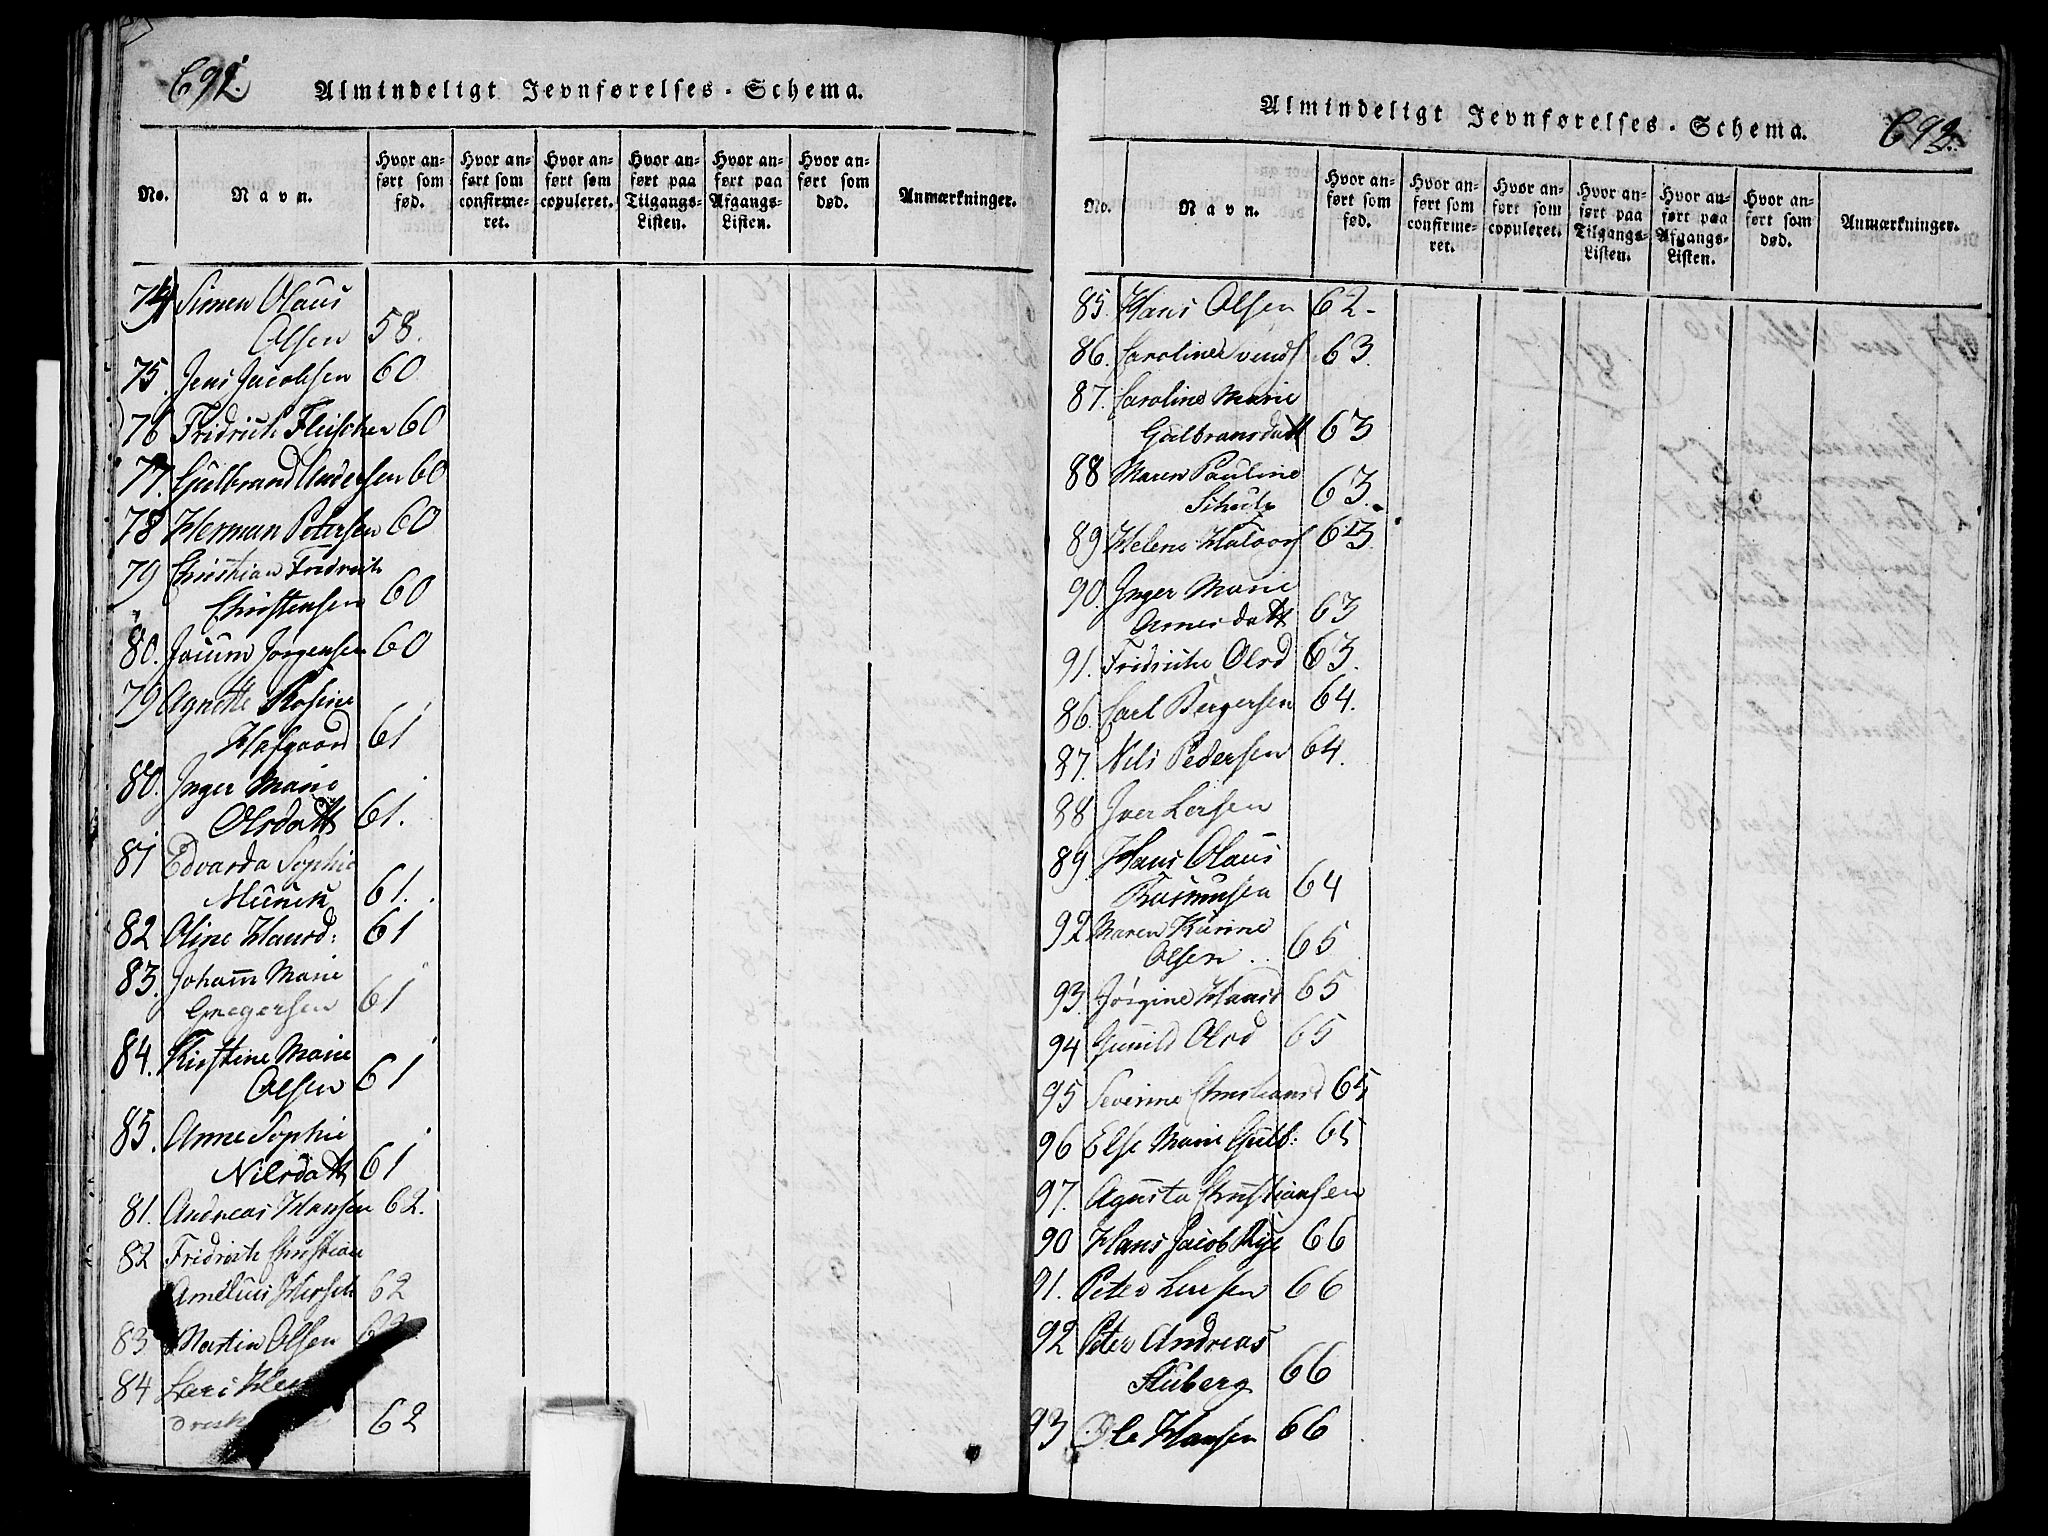 692.
Almindeligt Jevnførelses-Schema.
No.
Navn.
Hvor an-
ført som
fød.
Hvor an-
ført som
confirme-
ret.
Hvor an-
ført som
copuleret.
Hvor an-
ført paa
Tilgangs-
Listen.
Hvor an-
ført paa
Afgangs-
Listen.
Hvor an-
ført som
død.
Anmærkninger.
74 Simen Olaus
Olsen 58.
75. Jens Jacobsen 60
76 Fridrich Fleischer 60
77. Gulbrand Andersen 60
78 Herman Petersen 60
79 Christian Fridrich
Christensen 60
80. Joium Jorgensen 60
79 Agnette Rosine
Hafgaard 61
80. Inger Marie
Olsdatt 61.
81 Edvarda Sophie
Munch 61.
82 Oline Hansd: 61
83. Johann Marie
Gregersen 61
84. Kirstine Marie
Olsen 61
85. Anne Sophie
Nilsdatt 61
81. Andreas Hansen 62.
82 Fridrich Christian
Amelius Hirsch 62
83 Martin Olsen
84 Lars
62
693.
Almindeligt Jevnførelses-Schema.
No.
Navn.
Hvor an-
ført som
fød.
Hvor an-
ført som
confirme-
ret.
Hvor an-
ført som
copuleret.
Hvor an-
ført paa
Tilgangs-
Listen.
Hvor an-
ført paa
Afgangs-
Listen.
Hvor an-
ført som
død.
Anmærkninger.
85. Hans Olsen 62-
86. Caroline 63.
87. Caroline Marie
Gulbransdatt 63
88 Maren Pauline
Schultz 63.
89 Helene Halvors 63
90. Inger Marie
Arnesdatt 63
91. Fridricke Olsd 63.
86. Carl Bergersen 64.
87. Nils Pedersen 64.
88 Iver Larsen
89. Hans Olaus
Rasmusen 64
92 Maren Karine
Olsen 65
93. Jörgine Hansd 65
94 Gunild Olsd 65
95 Severine Christiansd 65
96 Else Marie Gulb: 65
97. Agusta Christiansen
90 Hans Jacob Rye 66
91. Peter Larsen 66
92 Peter Andreas
Stuberg 66
93 Ole Hansen 66